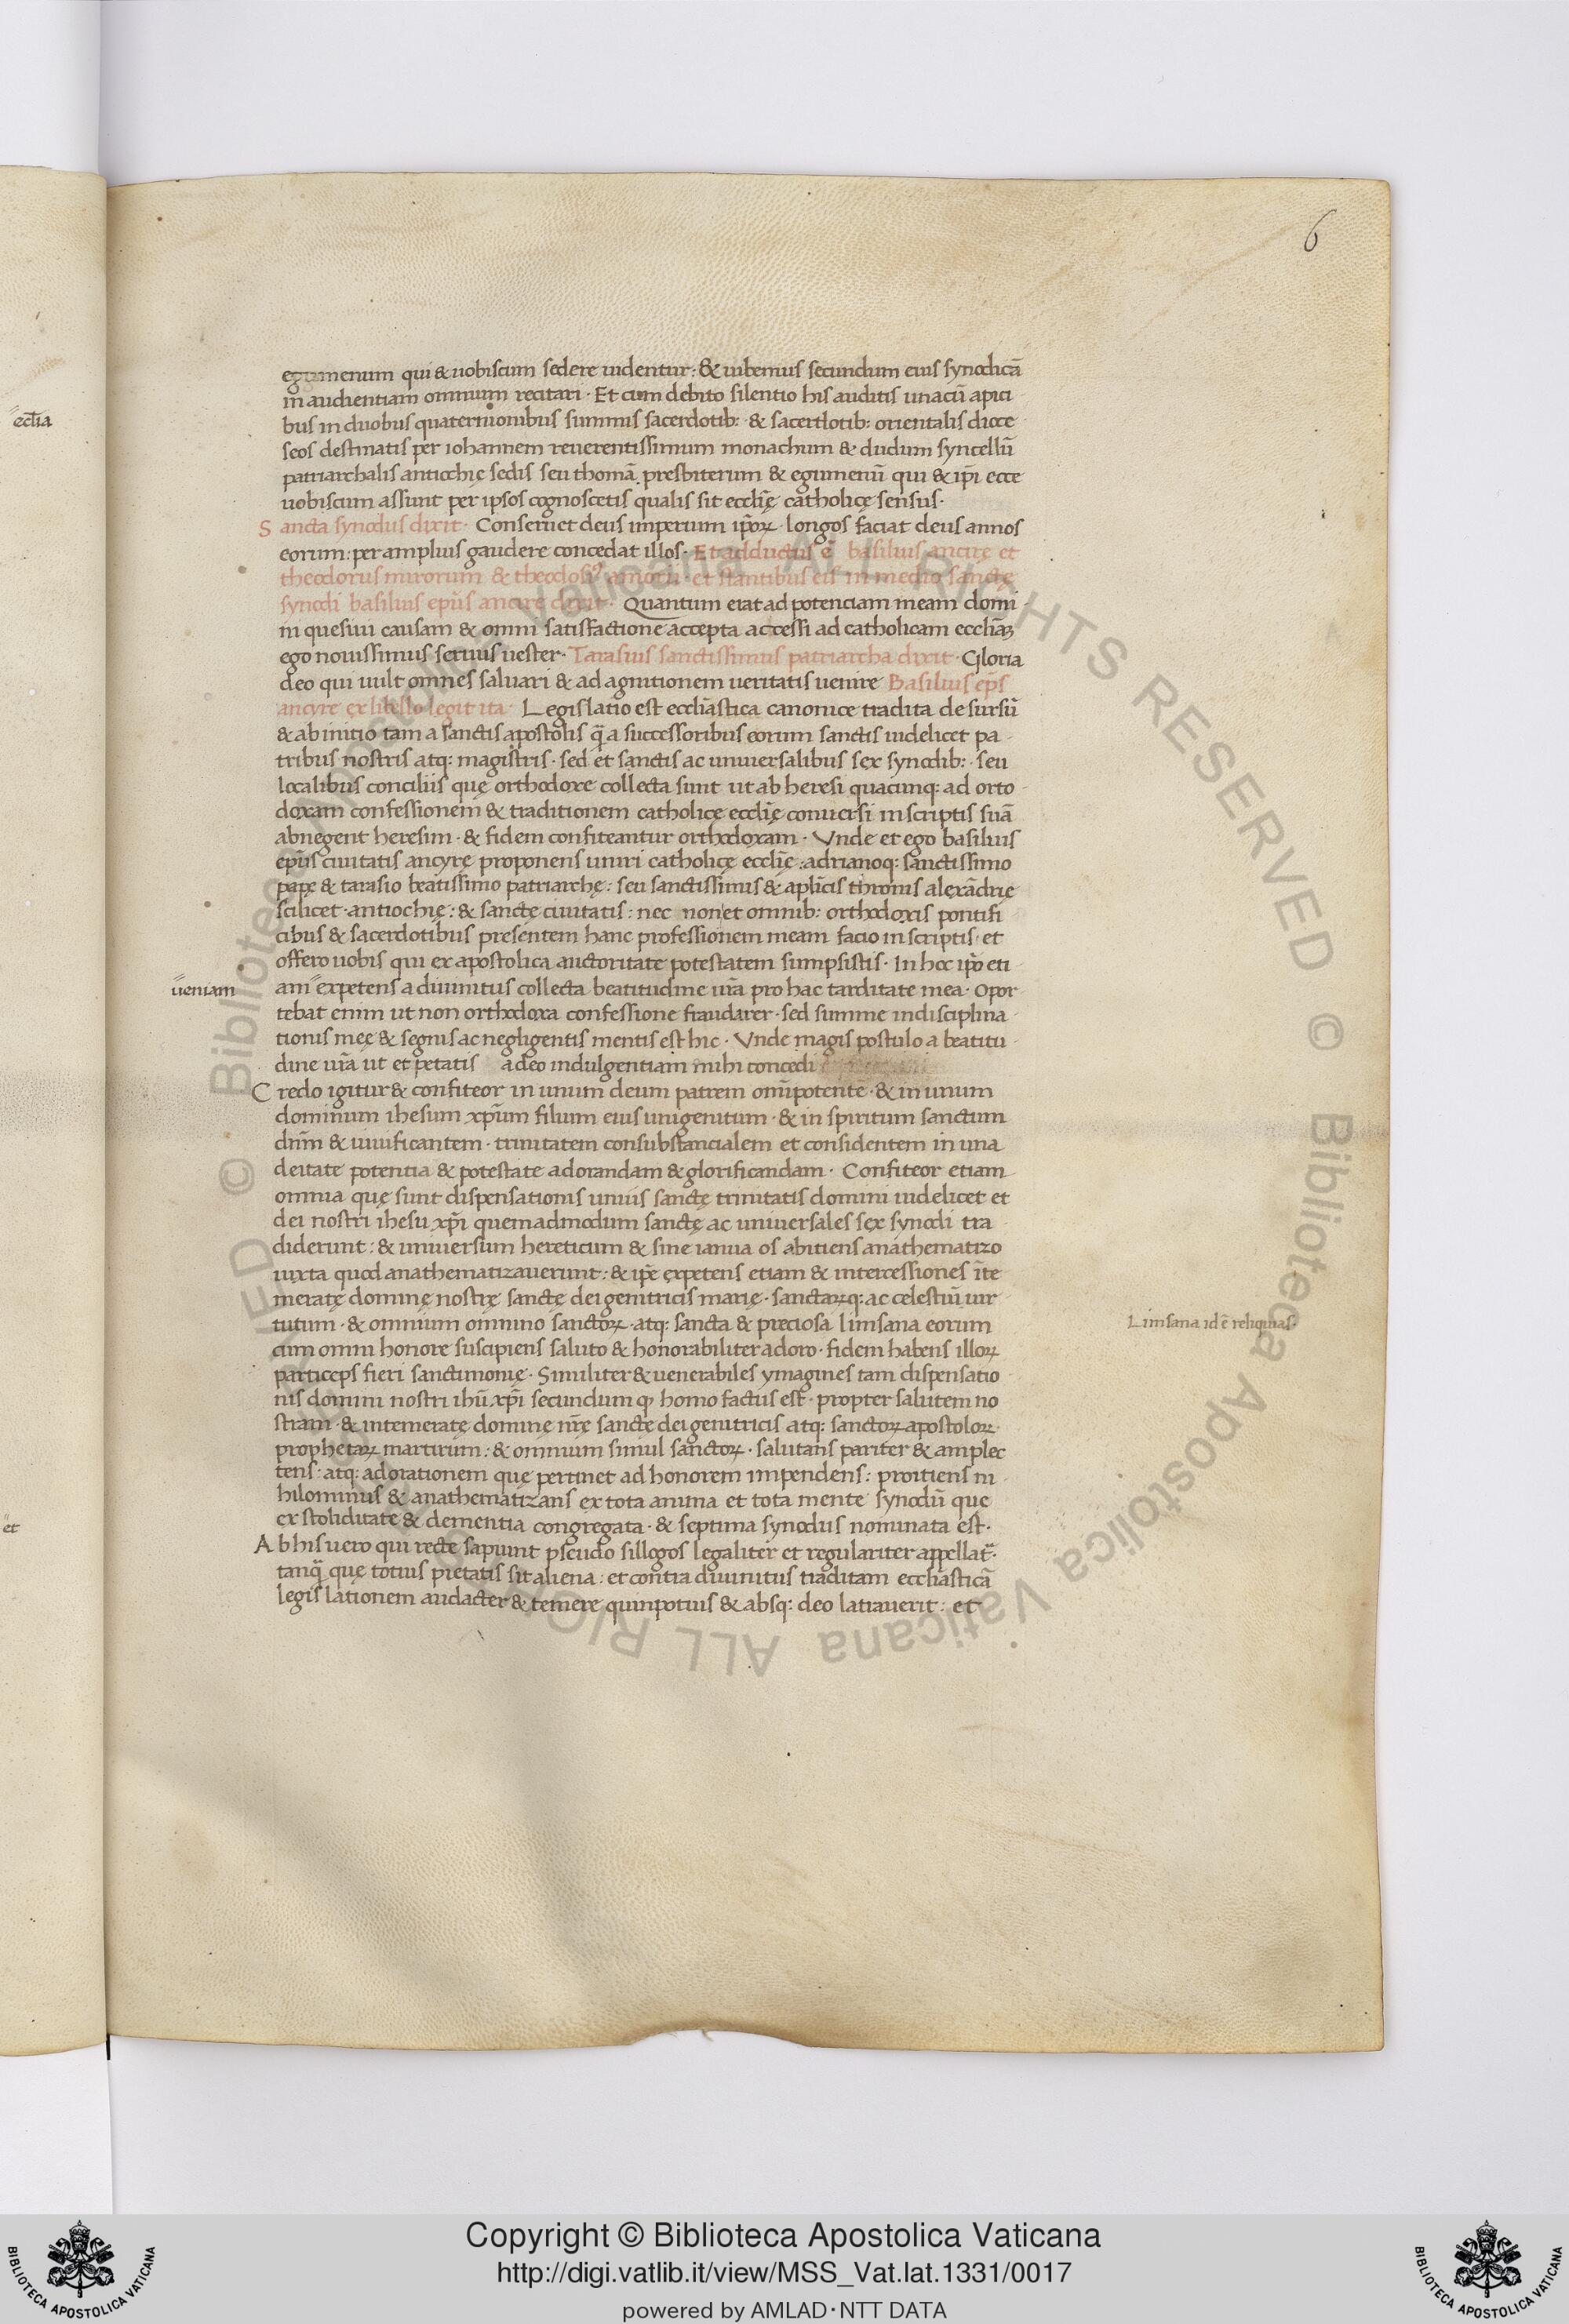 6
egumenum qui & uobiscum sedere uidentur: & iubemus secundum eius synodicā
in audientiam omnium recitari · Et cum debito silentio his auditis unacū apici
bus in duobus quaternionibus summis sacerdotib: & sacerdotib: orientalis dioce
seos destinatis per iohannem reuerentissimum monachum & dudum syncellū
patriarchalis antiochię sedis seu thomā presbiterum & egumenū qui & ip̄i ecce
uobiscum assunt per ipsos cognoscetis qualis sit ecclīę catholicę sensus·
Sancta synodus dixit· Conseruet deus imperium ip̄oꝝ· longos faciat deus annos
eorum: per amplius gaudere concedat illos· Et adductus ē basilius ancirę et
theodorus mirorum & theodosiꝰ amorii · et stantibus eis in medio sanctę
synodi basilius ep̄us ancirę dixit· Quantum erat ad potenciam meam domi
ni quesiui causam & omni satisfactione accepta accessi ad catholicam eccliā
ego nouissimus seruus uester· Tarasius sanctissimus patriarcha dixit· Gloria
deo qui uult omnes saluari & ad agnitionem ueritatis uenire Basilius ep̄s
ancyrę ex libello legit ita· Legislatio est eccliāstica canonice tradita de sursū
& ab initio tam a sanctis apostolis q̄ a successoribus eorum sanctis uidelicet pa
tribus nostris atq: magistris· sed et sanctis ac uniuersalibus sex synodib:· seu
localibus conciliis quę orthodoxe collecta sunt ut ab heresi quacunq: ad orto
doxam confessionem & traditionem catholicę ecclīę conuersi in scriptis suā
abnegent heresim · & fidem confiteantur orthodoxam · Vnde et ego basilius
ep̄us ciuitatis ancyrę proponens uniri catholicę ecclīę: adrianoq: sanctissimo
papę & tarasio beatissimo patriarchę: seu sanctissimis & aplīcis thronis alexādrię
scilicet· antiochię: & sanctę ciuitatis: nec non et omnib: orthodoxis pontifi
cibus & sacerdotibus presentem hanc professionem meam facio in scriptis· et
offero uobis qui ex apostolica auctoritate potestatem sumpsistis· In hoc ip̄o eti
ueniam
am expetens a diuinitus collecta beatitudine ur̄a pro hac tarditate mea· Opor
tebat enim ut non orthodoxa confessione fraudarer· sed summe indisciplina
tionis meę & segnis ac negligentis mentis est hic· Vnde magis postulo a beatitu
dine ur̄a ut et petatis a deo indulgentiam mihi concedi
Credo igitur & confiteor in unum deum patrem omīpotentē· & in unum
dominum ihesum xp̄um filium eius unigenitum· & in spiritum sanctum
dn̄m & uiuificantem· trinitatem consubstancialem et considentem in una
deitate potentia & potestate adorandam & glorificandam· Confiteor etiam
omnia quę sunt dispensationis unius sanctę trinitatis domini uidelicet et
dei nostri ihesu xp̄i quemadmodum sanctę ac uniuersales sex synodi tra
diderunt: & uniuersum hereticum & sine ianua os abitiens anathematizo
iuxta quod anathematizauerunt: & ip̄e expetens etiam & intercessiones īte
meratę dominę nostrę sanctę dei genitricis marię· sanctaꝝq: ac celestiū uir
tutum· & omnium omnino sanctoꝝ· atq: sancta & preciosa limsana eorum
Limsana id ē reliquias·
cum omni honore suscipiens saluto & honorabiliter adoro· fidem habens illoꝝ
particeps fieri sanctimonię· Similiter & uenerabiles ymagines tam dispensatio
nis domini nostri ihū xp̄i secundum ꝙ homo factus est· propter salutem no
stram· & intemeratę dominę nr̄ę sanctę dei genitricis atq: sanctoꝝ apostoloꝝ·
prophetaꝝ martirum: & omnium simul sanctoꝝ· salutans pariter & amplec
tens: atq: adorationem que pertinet ad honorem impendens: proitiens ni
hilominus & anathematizans ex tota anima et tota mente synodū que
ex stoliditate & dementia congregata· & septima synodus nominata est·
Ab his uero qui recte sapiunt pseudo sillogos legaliter et regulariter appellat̄·
tanq̄ quę totius pietatis sit aliena: et contra diuinitus traditam eccliāsticā
legislationem audacter & temere quinpotius & absq: deo latrauerit: et
ecclīa
et
Copyright © Biblioteca Apostolica Vaticana
http://digi.vatlib.it/view/MSS_Vat.lat.1331/0017
powered by AMLAD·NTT DATA
BIBLIOTECA APOSTOLICA VATICANA
BIBLIOTECA APOSTOLICA VATICANA
© Biblioteca Apostolica Vaticana ALL RIGHTS RESERVED © Biblioteca Apostolica Vaticana ALL RIGHTS RESERVED